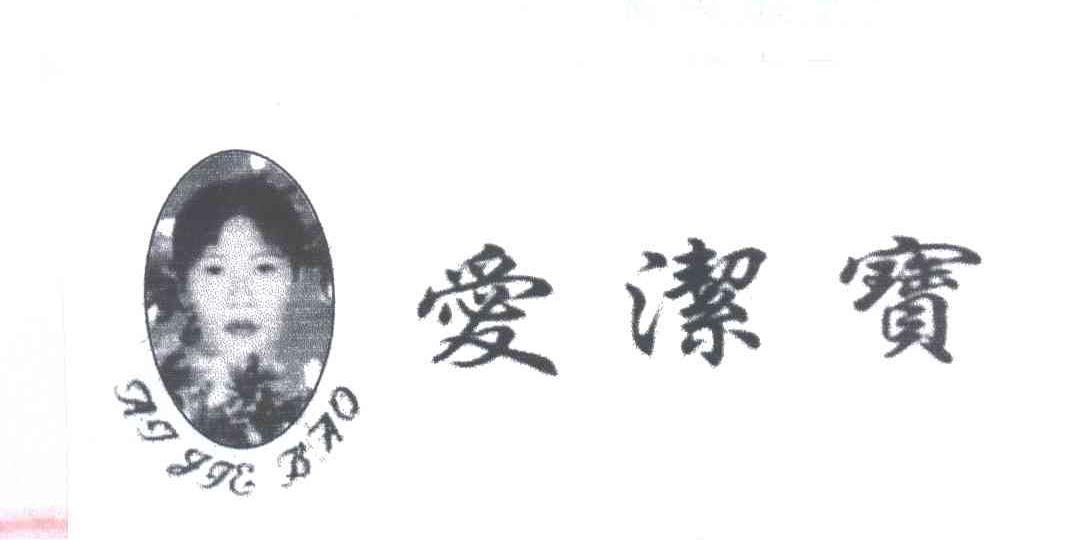 愛潔寶
AI JIE BAO